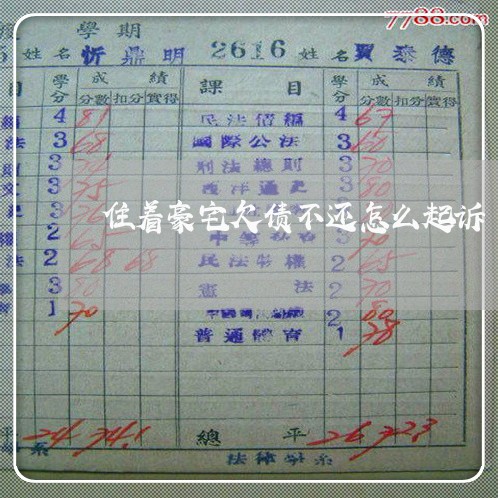 7788.com
學期
姓名 忻鼎明 2616 姓名 賈泰德
目 學分 成績 課目 學分 成績
分數 扣分 實得 分數 扣分 實得
4 81 民法債編 4 67
法 3 68 國際公法 3 60
3 刑法總則 3 70
3 75 西洋通史 3 80
住着豪宅欠债不还怎么起诉
2 65 70
法 2 68 68 民法物權 2 65
3 80 憲法 2 70
1 70 2 80
普通體育 1 78
平 24 74.1 總平 26 72.3
系 法律學系